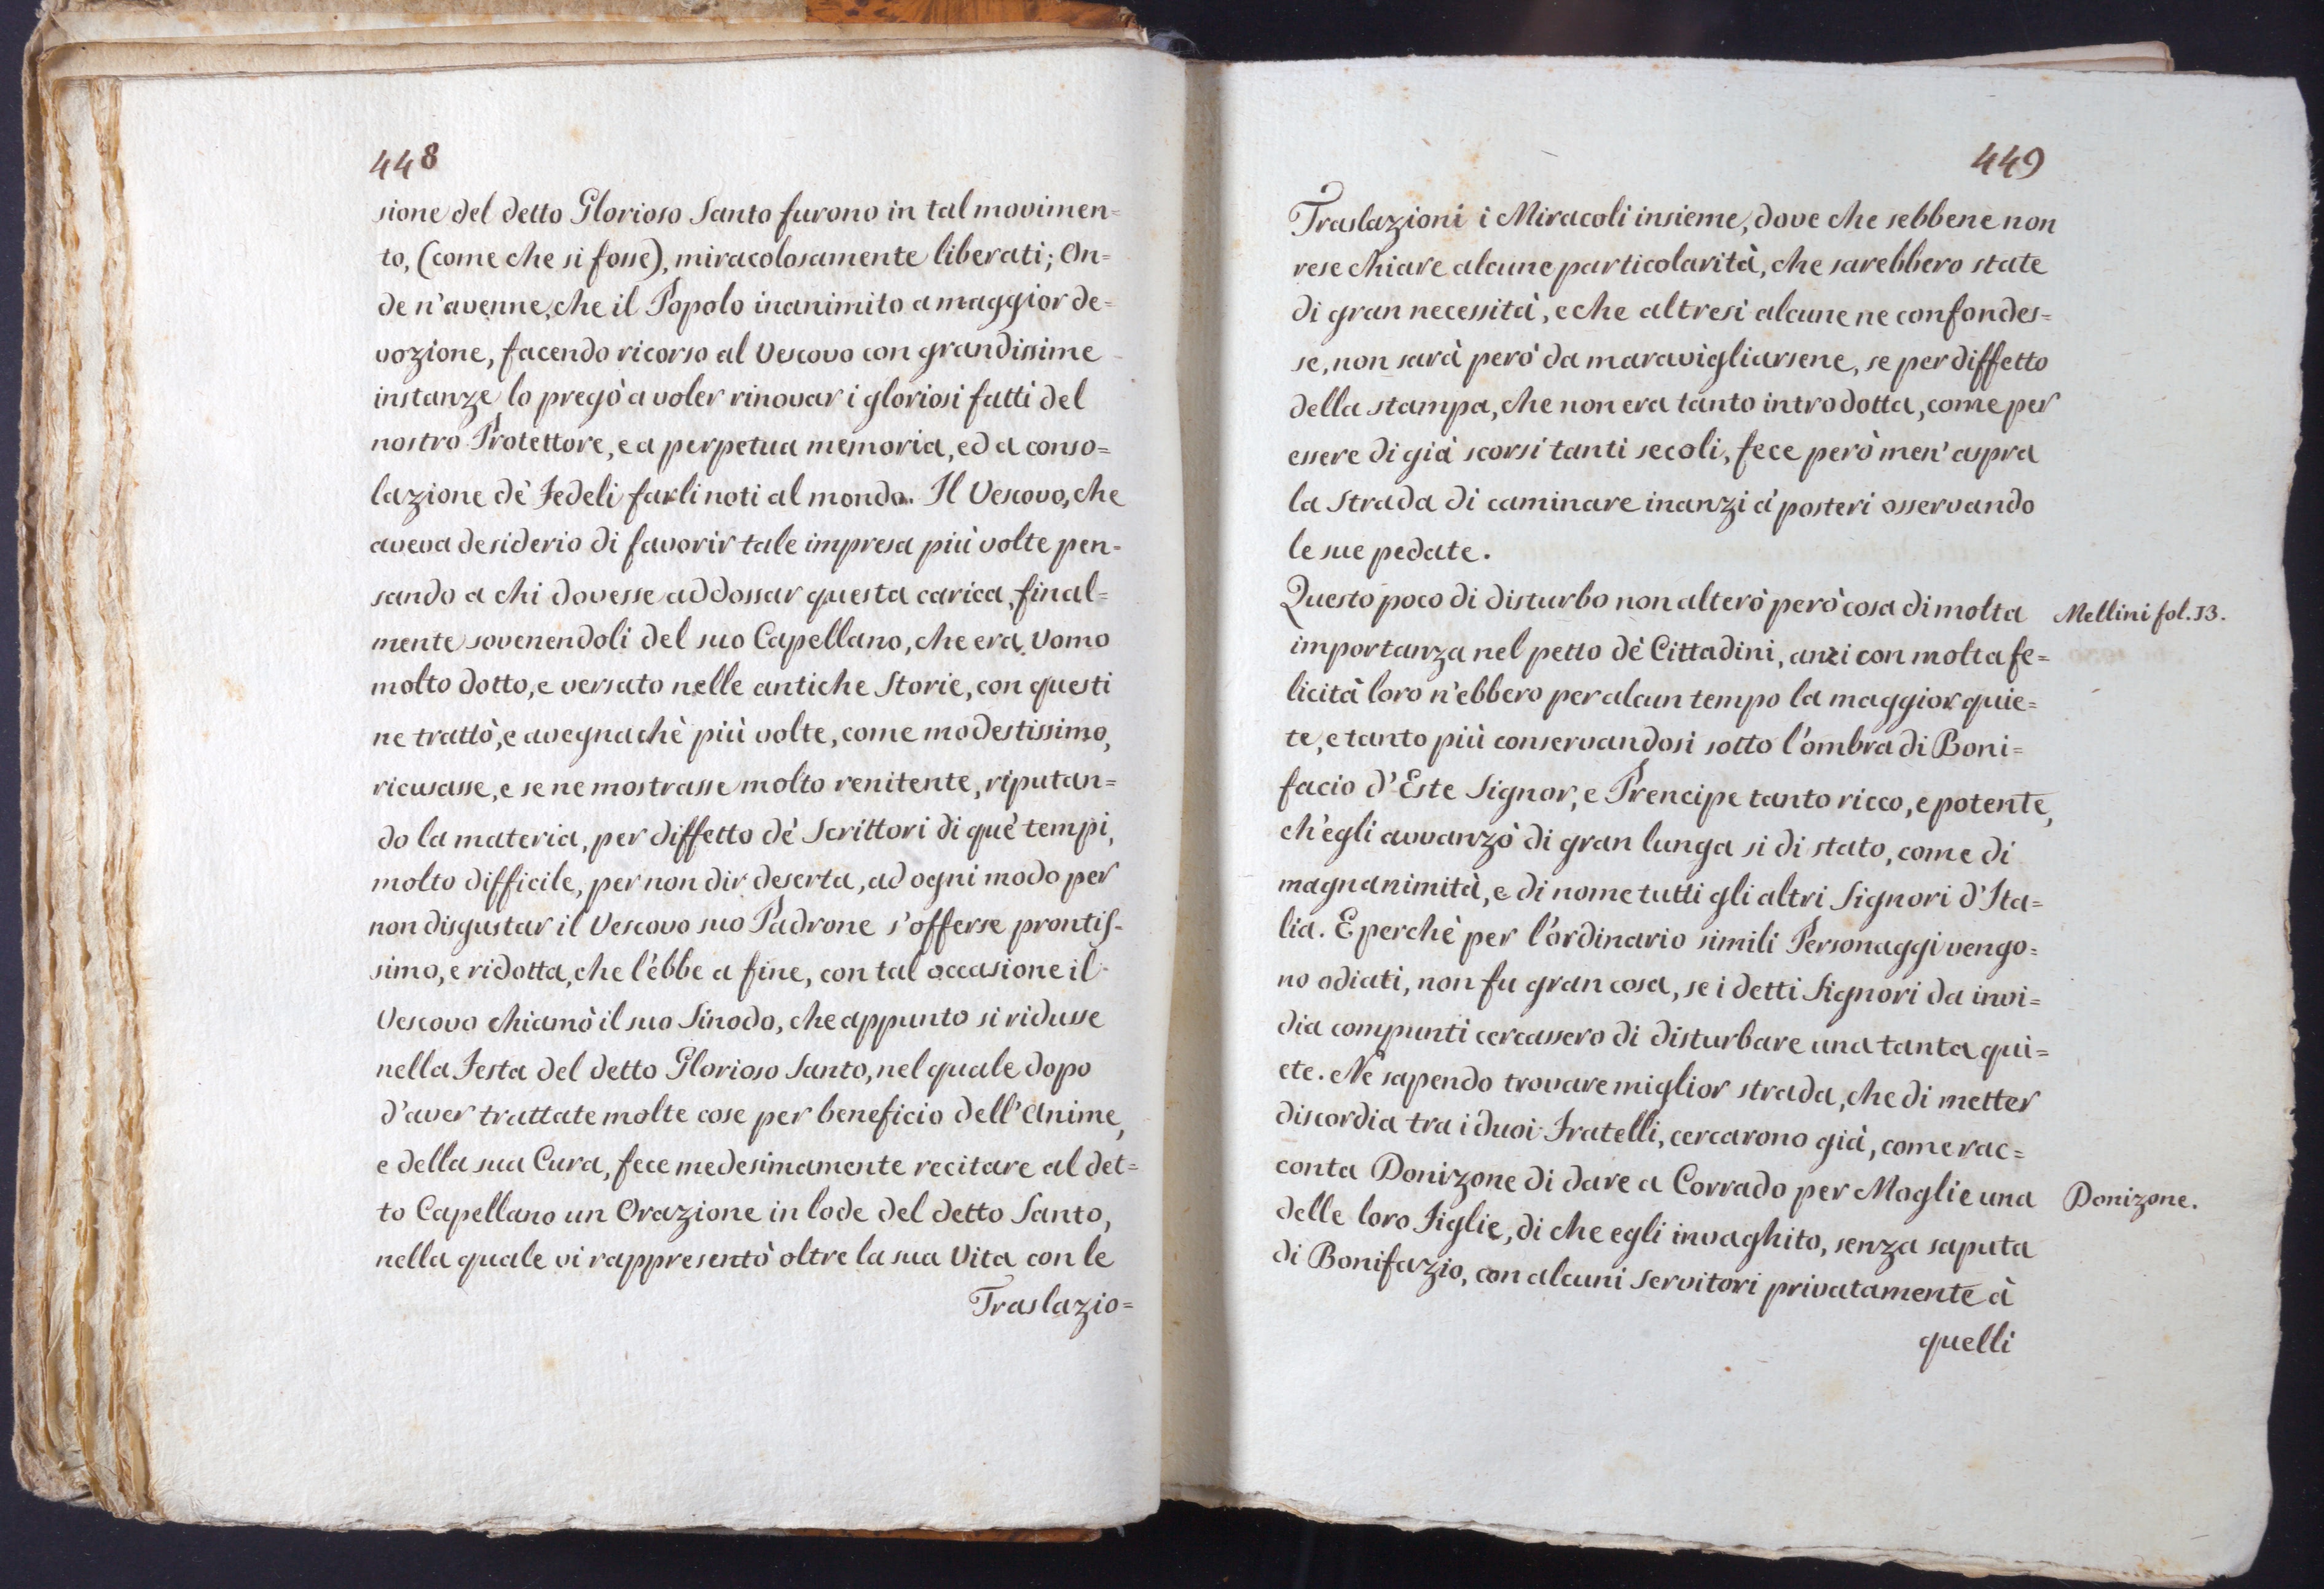 448
sione del detto Glorioso Santo furono in tal movimen=
to, (come che si fosse), miracolosamente liberati; On=
de n'avenne, che il Popolo inanimito a maggior de=
vozione, facendo ricorso al Vescovo con grandissime
instanze lo pregò a voler rinovar i gloriosi fatti del
nostro Protettore, e a perpetua memoria, ed a conso=
lazione de' Fedeli farli noti al mondo. Il Vescovo, che
aveva desiderio di favorir tale impresa più volte pen-
sando a chi dovesse addossar questa carica, final=
mente sovenendoli del suo Capellano, che era Uomo
molto dotto, e versato nelle antiche Storie, con questi
ne trattò, e avegnachè più volte, come modestissimo,
ricusasse, e se ne mostrasse molto renitente, riputan=
do la materia, per diffetto de' Scrittori di que' tempi,
molto difficile, per non dir deserta, ad ogni modo per
non disgustar il Vescovo suo Padrone s'offerse prontis-
simo, e ridotta, che l'ebbe a fine, con tal occasione il
Vescovo chiamò il suo Sinodo, che appunto si ridusse
nella Festa del detto Glorioso Santo, nel quale dopo
d'aver trattate molte cose per beneficio dell'Anime,
e della sua Cura, fece medesimamente recitare al det=
to Capellano un Orazione in lode del detto Santo,
nella quale vi rappresentò oltre la sua Vita con le
Traslazio=
449
Traslazioni i Miracoli insieme, dove che sebbene non
rese chiare alcune particolarità, che sarebbero state
di gran necessità, e che altresì alcune ne confondes=
se, non sarà però da maravigliarsene, se per diffetto
della stampa, che non era tanto introdotta, come per
essere di già scorsi tanti secoli, fece però men' aspra
la strada di caminare inanzi a' posteri osservando
le sue pedate.
Questo poco di disturbo non alterò però cosa di molta
Mellini fol. 13.
importanza nel petto de' Cittadini, anzi con molta fe=
licità loro n'ebbero per alcun tempo la maggior quie=
te, e tanto più conservandosi sotto l'ombra di Boni=
facio d'Este Signor, e Prencipe tanto ricco, e potente,
ch'egli avvanzò di gran lunga si di stato, come di
magnanimità, e di nome tutti gli altri Signori d'Ita=
lia. E perchè per l'ordinario simili Personaggi vengo=
no odiati, non fu gran cosa, se i detti Signori da invi=
dia compunti cercassero di disturbare una tanta qui=
ete. Nè sapendo trovare miglior strada, che di metter
discordia tra i duoi Fratelli, cercarono già, come rac=
conta Donizone di dare a Corrado per Moglie una
Donizone.
delle loro Figlie, di che egli invaghito, senza saputa
di Bonifazio, con alcuni Servitori privatamente à
quelli